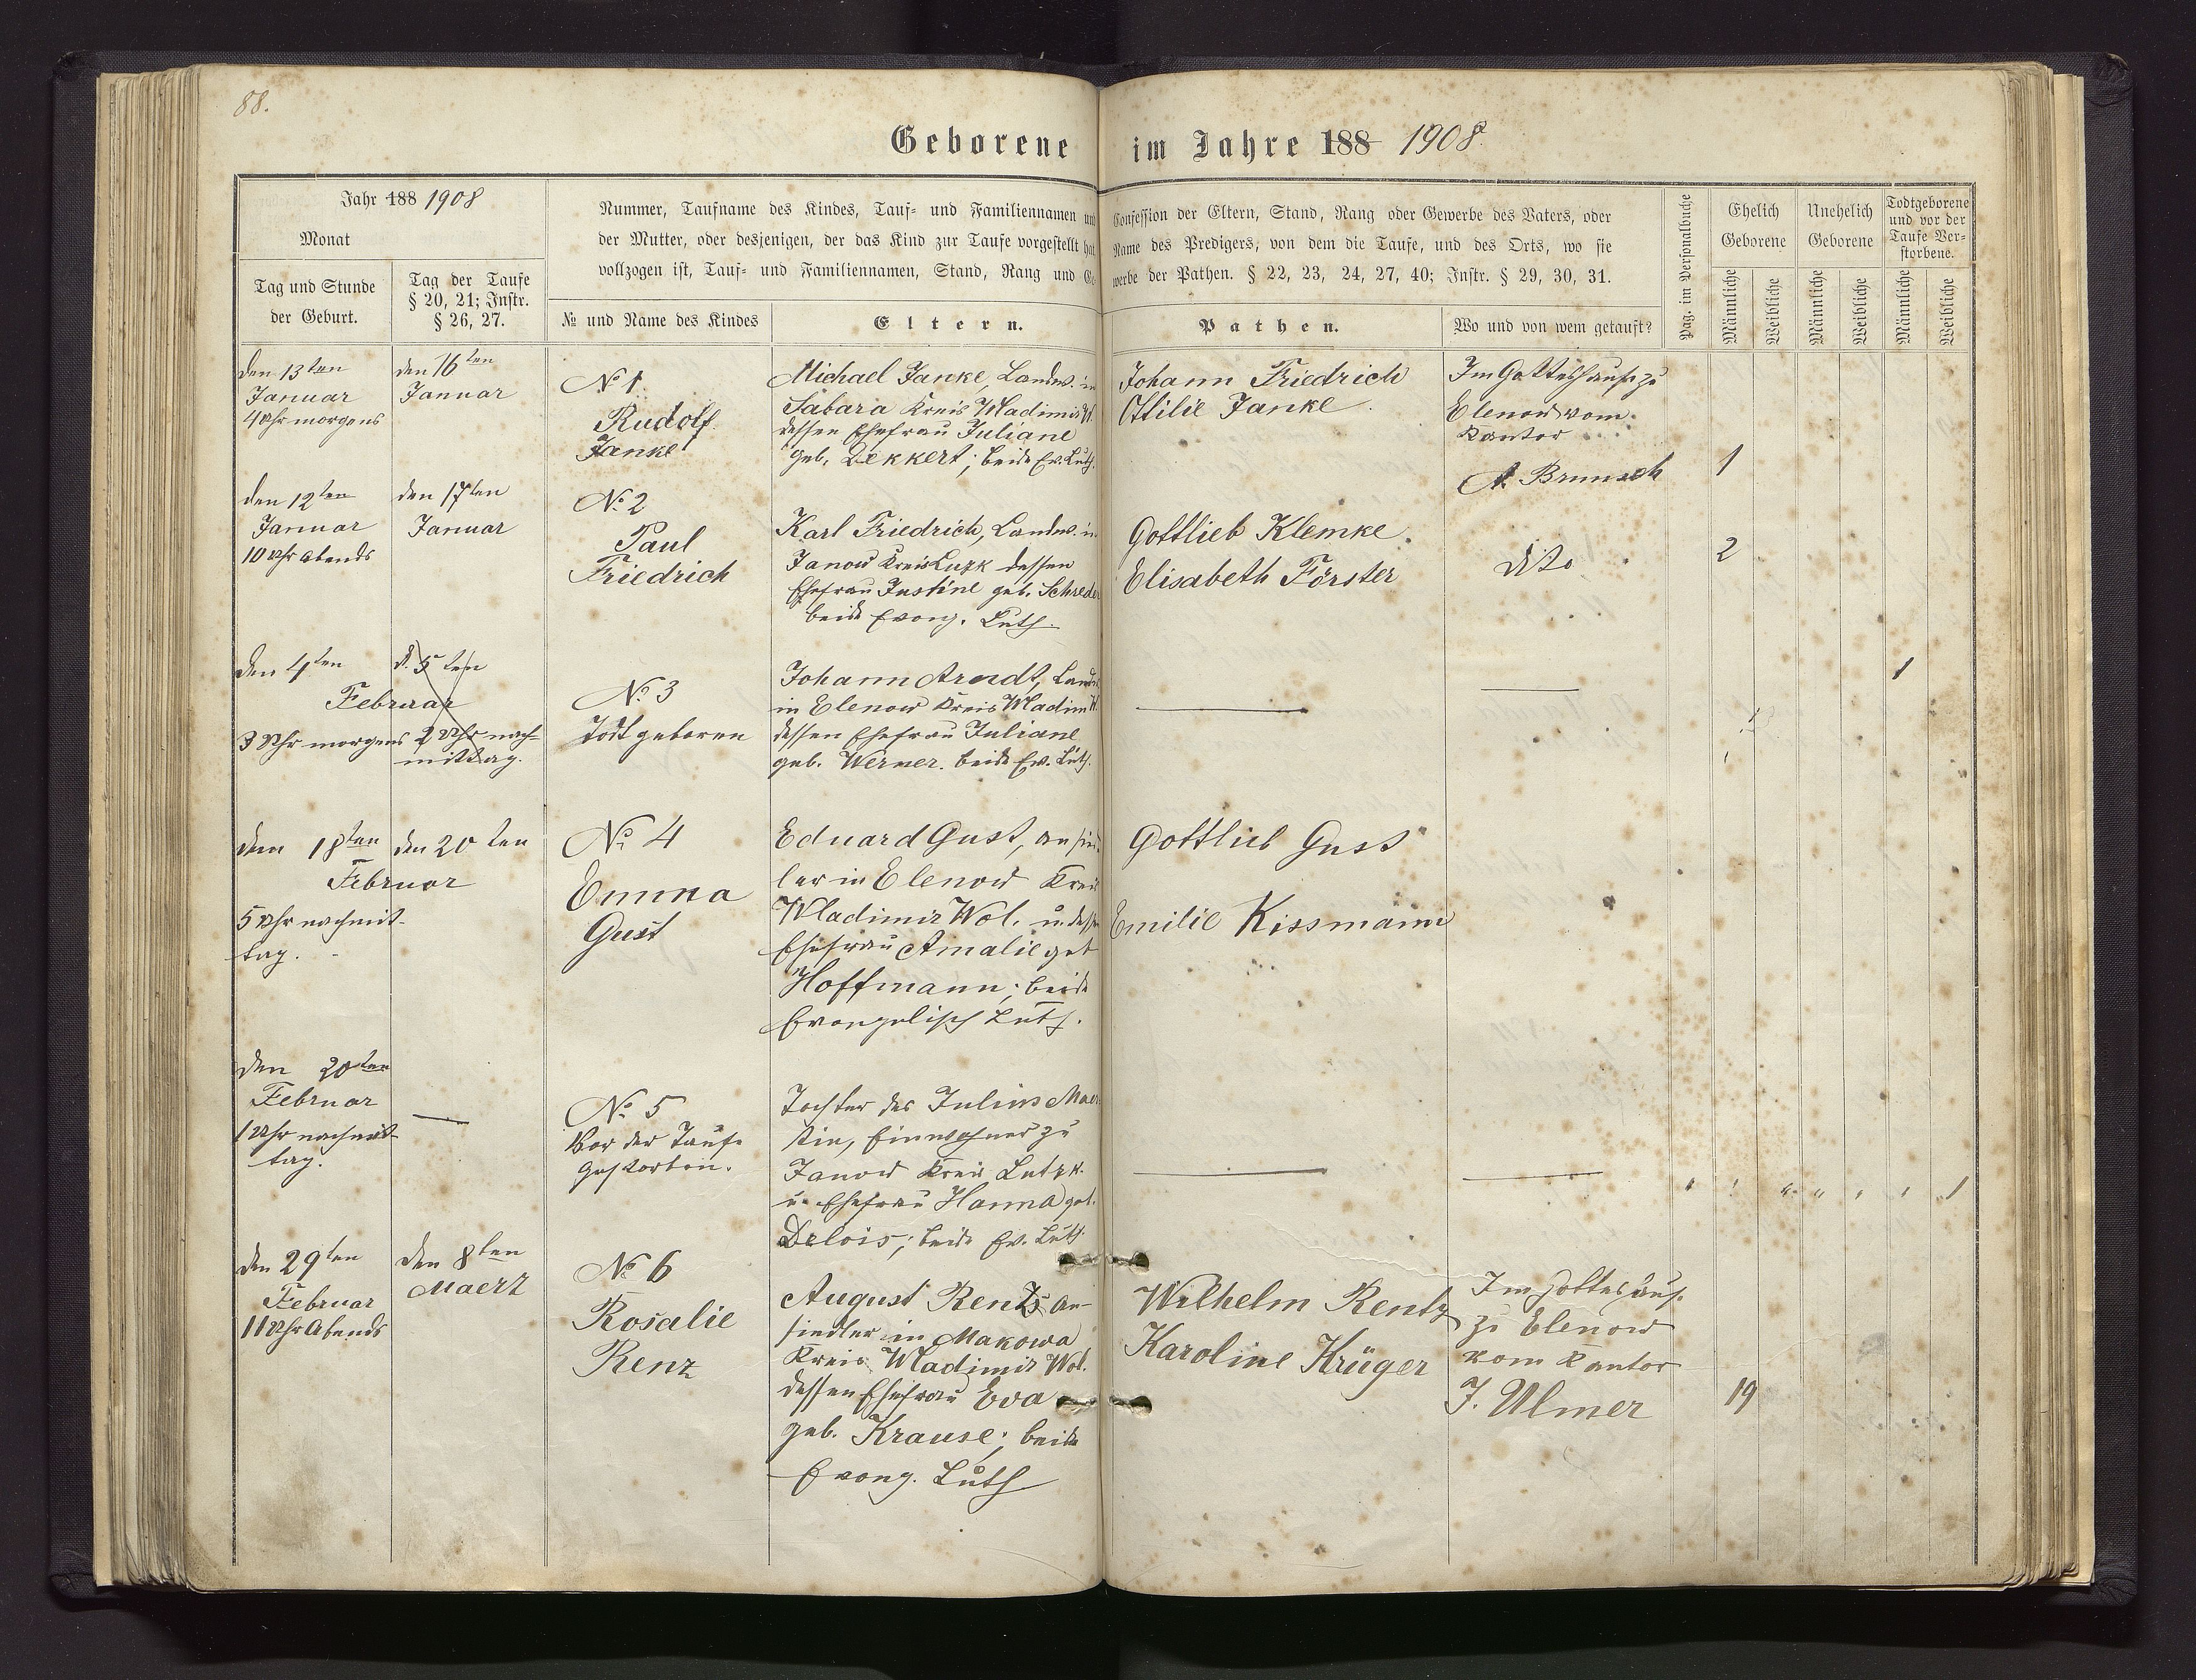 88.
Geborene im Jahre 188 1908.
Jahr 188 1908
Monat
Tag und Stunde
der Geburt.
Tag der Taufe
§ 20, 21; Instr.
§ 26, 27.
Nummer, Taufname des Kindes, Tauf- und Familiennamen und
der Mutter, oder desjenigen, der das Kind zur Taufe vorgestellt hat
vollzogen ist, Tauf- und Familiennamen, Stand, Rang und Ge-
№ und Name des Kindes
Eltern.
Confession der Eltern, Stand, Rang oder Gewerbe des Vaters, oder
Name des Predigers, von dem die Taufe, und des Orts, wo sie
werbe der Pathen. § 22, 23, 24, 27, 40; Instr. § 29, 30, 31.
Pathen.
Wo und von wem getauft?
Pag. im Personalbuche
Ehelich
Geborene
Unehelich
Geborene
Todtgeborene
und vor der
Taufe Ver-
storbene.
Männliche
Weibliche
Männliche
Weibliche
Männliche
Weibliche
den 13ten
Januar
4 Uhr morgens
den 16ten
Januar
№ 1.
Rudolf
Janke
Michael Janke, Landw. in
Sabara Kreis Wladimir W.
dessen Ehefrau Juliane
geb. Dekkert; beide Ev. Luth.
Johann Friedrich
Ottilie Janke.
Im Gotteshause zu
Elenow vom
Kantor
A. Brunsch
1
den 12ten
Januar
10 Uhr Abends
den 17ten
Januar
№ 2
Paul
Friedrich
Karl Friedrich, Landw. in
Janow Kreis Luzk dessen
Ehefrau Justine geb. Schreder
beide Evang. Luth.
Gottlieb Klemke.
Elisabeth Förster
dito
2
den 4ten
Februar
3 Uhr morgens
d. 5ten
2 Uhr nach-
mittag.
№ 3
Todtgeboren
Johann Arndt, Landw.
in Elenow Kreis Wladim W.
dessen Ehefrau Juliane
geb. Werner. beide Ev. Luth.
1
den 18ten
Februar
5 Uhr nachmit-
tag.
den 20ten
№ 4
Emma
Gust
Eduard Gust, Ansied
ler in Elenow Kreis
Wladimir Wol. u. dessen
Ehefrau Amalie geb
Hoffmann; beide
Evangelisch Luth.
Gottlieb Gust
Emilie Kissmann
den 20ten
Februar
1 Uhr nachmit-
tag.
№ 5
Vor der Taufe
gestorben.
Tochter des Julius Maer
tin, Einwohner zu
Janow Kreis Lutzk.
u. Ehefrau Hanna geb.
Delois; beide Ev. Luth
1
den 29ten
Februar
11 Uhr Abends
den 8ten
Maerz
№ 6
Rosalie
Renz
August Renz An-
siedler in Makowa
Kreis Wladimir Wol.
dessen Ehefrau Eva
geb. Krause; beide
Evang. Luth
Wilhelm Rentz
Karoline Krüger
Im Gotteshaus.
zu Elenow
vom Kantor
J. Ulmer
19